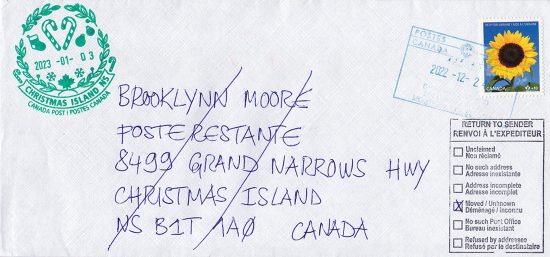 2023 -01- 03
CHRISTMAS ISLAND NS
CANADA POST | POSTES CANADA
POSTES
CANADA
2022-12-2
CANADA
BROOKLYNN MOORE
POSTE RESTANTE
8499 GRAND NARROWS HWY
CHRISTMAS ISLAND
NS B1T 1A0 CANADA
RETURN TO SENDER
RENVOI À L'EXPÉDITEUR
Unclaimed
Non réclamé
No such address
Adresse inexistante
Address incomplete
Adresse incomplet
Moved / Unknown
Déménagé / Inconnu
No such Post Office
Bureau inexistant
Refused by addressee
Refusé par le destinataire